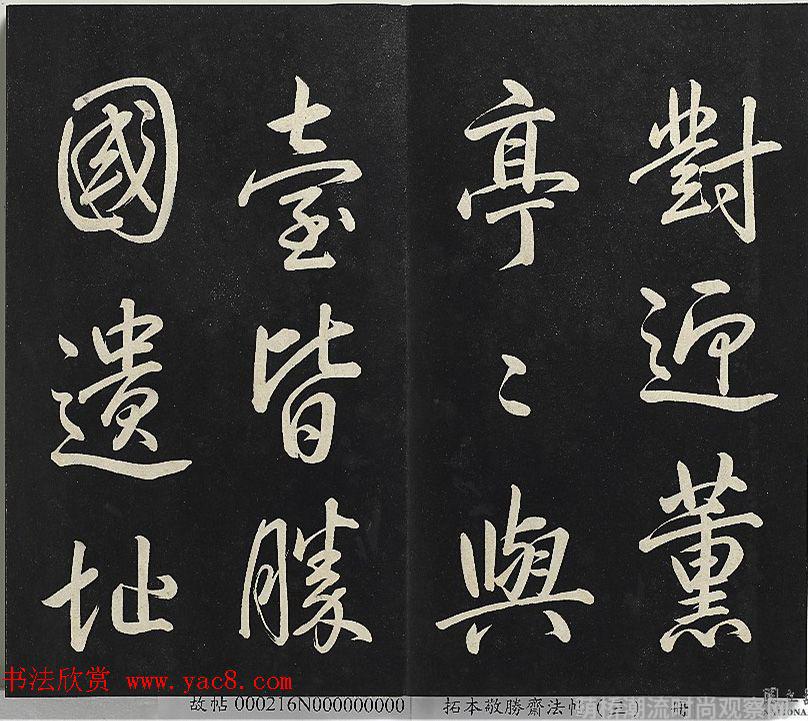 對迎薰
亭〻與
臺皆勝
國遺址
书法欣赏 www.yac8.com
故帖 000216N000000000 拓本敬勝齋法帖(三) 冊